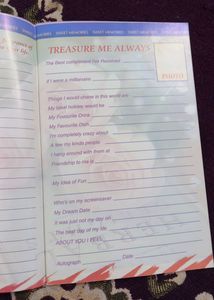 SWEET MEMORIES SWEET MEMORIES SWEET MEMORIES
TREASURE ME ALWAYS
The Best compliment I've Received
If I were a millionaire
PHOTO
Things I would share in this world are
My Ideal holiday would be
My Favourite Drink
My Favourite Dish
I'm completely crazy about
A few me kinda people
I hang around with them at
Friendship to me is
My Idea of Fun
Who's on my screensaver?
My Dream Date
It was just not my day on
The best day of my life
ABOUT YOU I FEEL
Autograph
Date